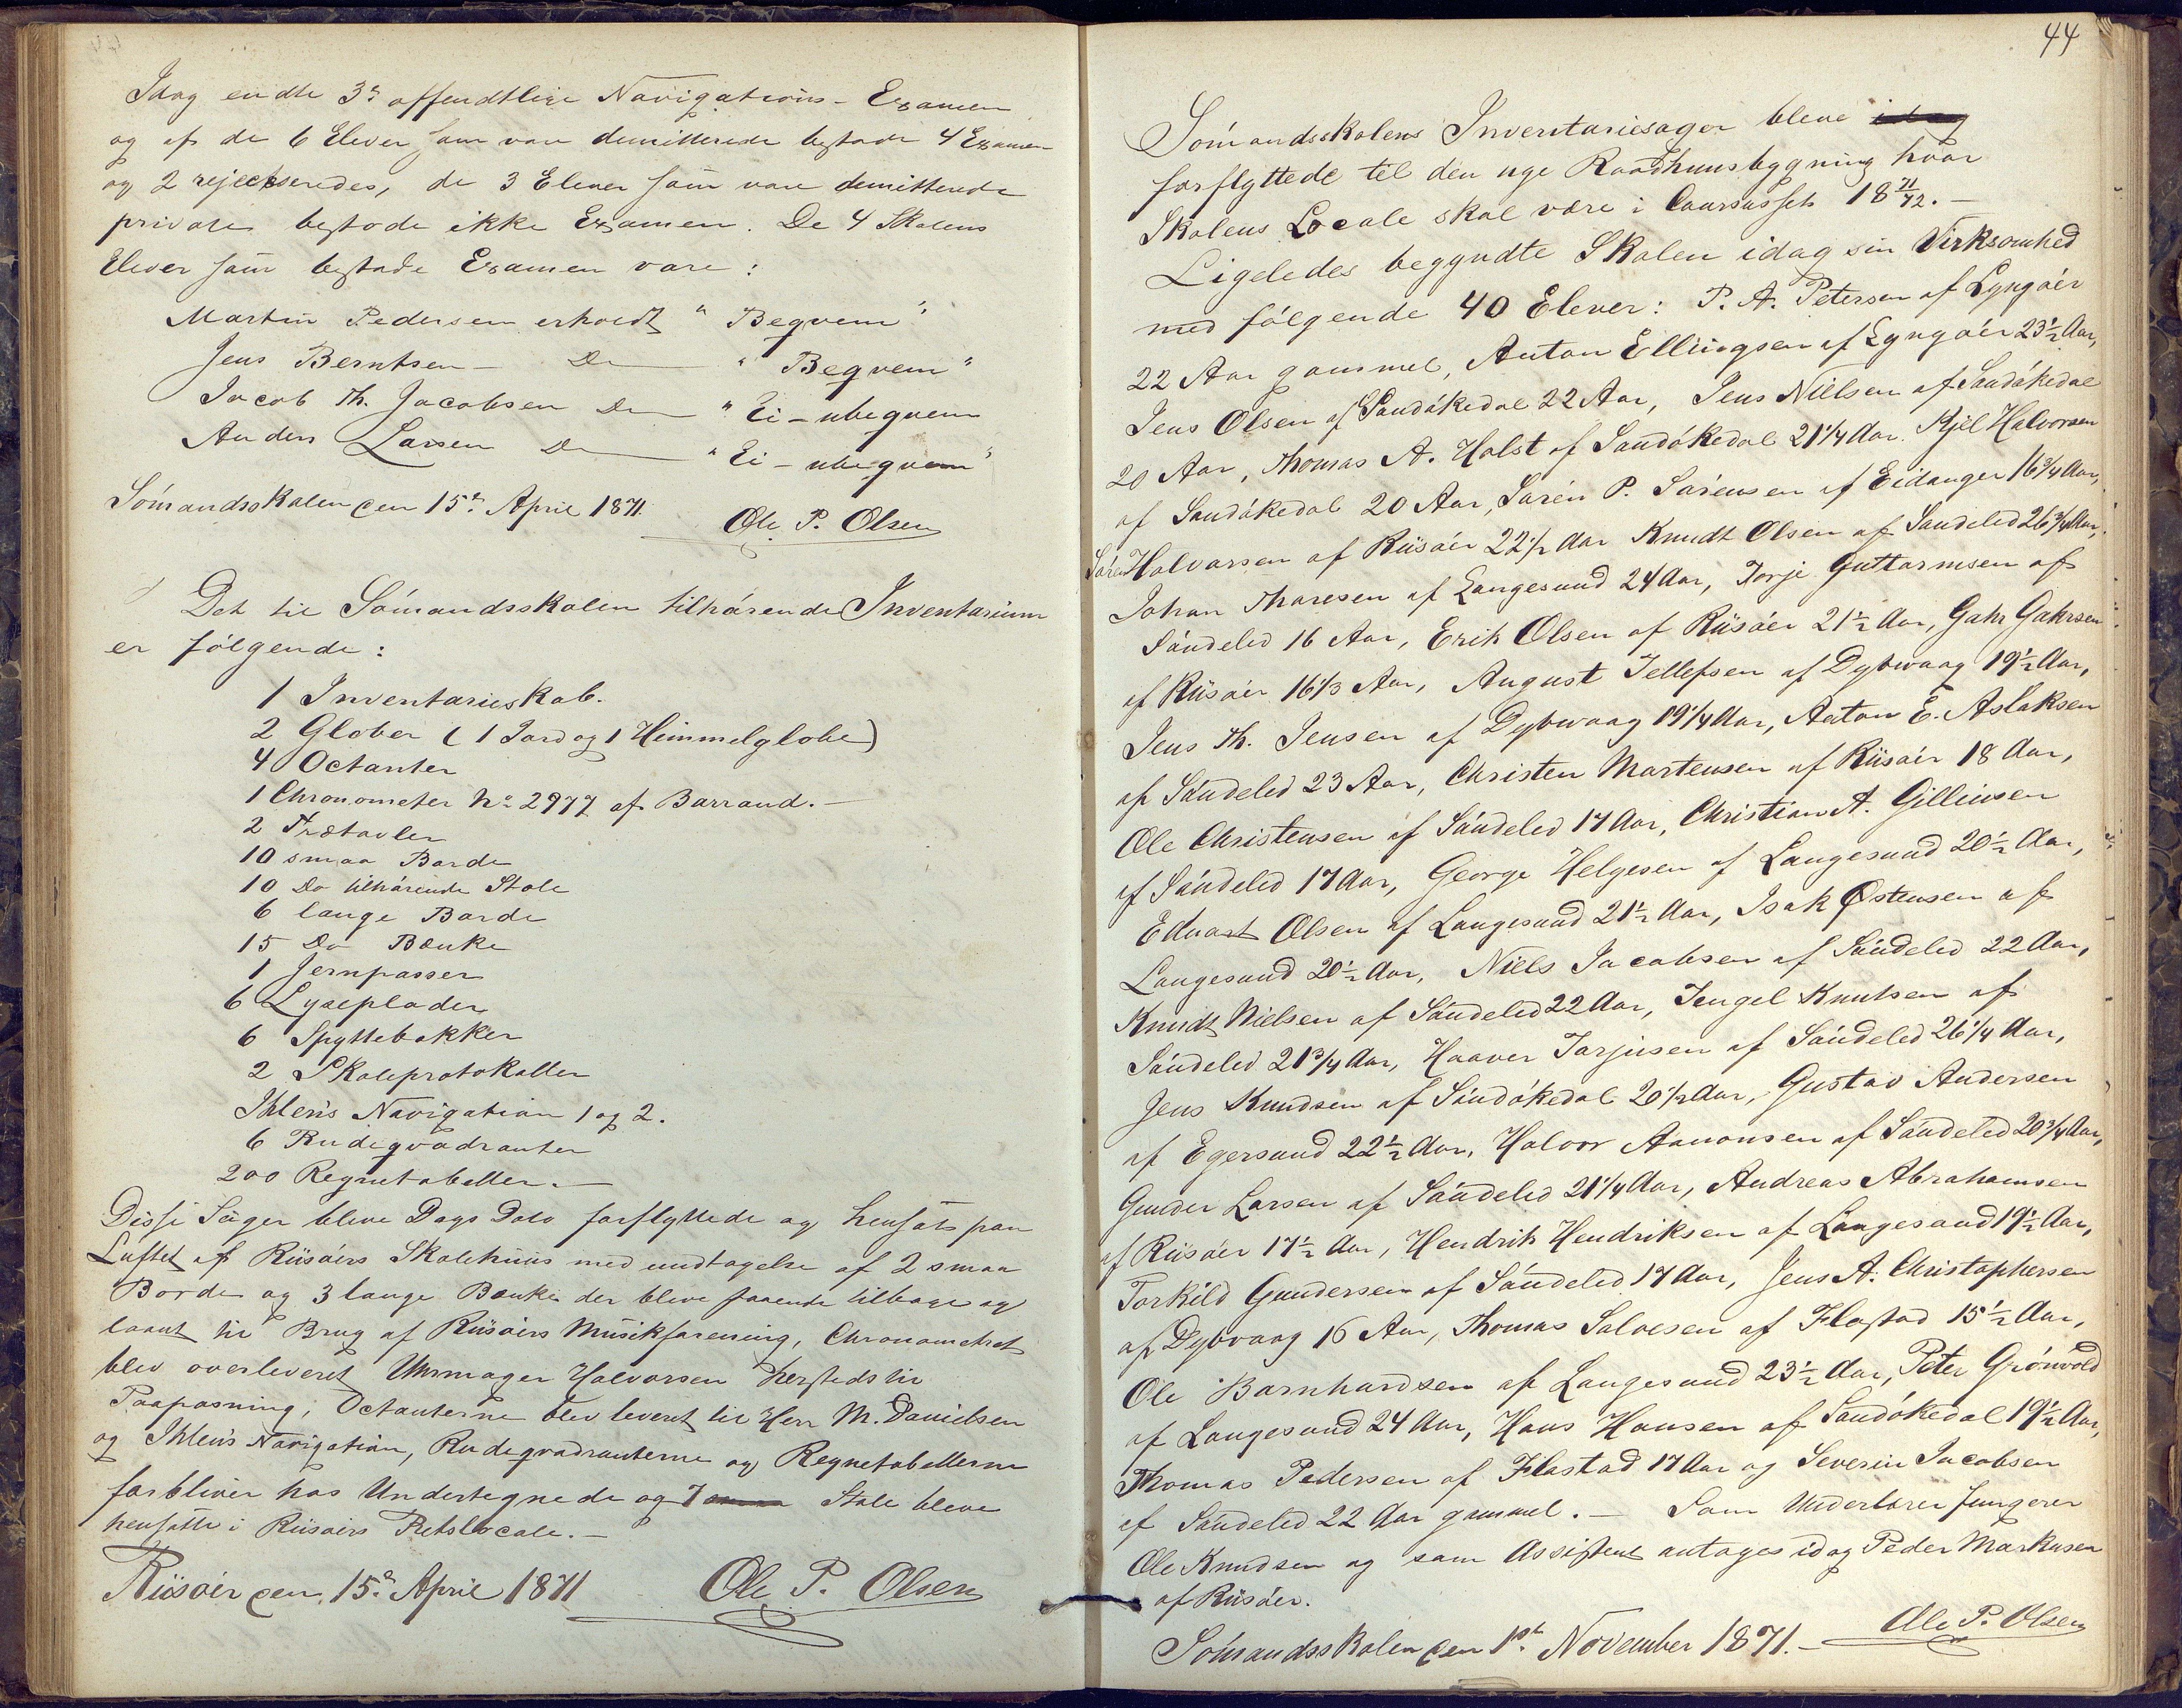 Idag endte 3die offendtlige Navigations-Examen
og af de 6 Elever som vare demitterede bestode 4 Examen
og 2 rejeckseredes, de 3 Elever som vare demitterede
private bestode ikke Examen. De 4 Skolens
Elever som bestode Examen vare:
Martin Pedersen erholdt "Beqvem"
Jens Berntsen – Do "Beqvem"
Jacob Th. Jacobsen Do "Ei-ubeqvem
Anders Larsen Do "Ei-ubeqvem"
Sömandsskolen den 15de April 1871.
Ole P. Olsen
Det til Sömandsskolen tilhörende Inventarium
er fölgende:
1 Inventarieskab.
2 Glober (1 Jord og 1 Himmelglobe)
4 Octanter
1 Chronometer No 2977 af Barraud.–
2 Trætavler
10 smaa Borde
10 Do tilhörende Stole
6 lange Borde
15 Do Bænke
1 Jernpasser
6 Lyseplader
6 Spyttebakker
2 Skoleprotokoller
Ihlen's Navigation 1 og 2.
6 Rudeqvadranter
200 Regnetabeller.–
Disse Sager bleve Dags Dato forflyttede og hensat paa
Luftet af Riisöers Skolehuus med undtagelse af 2 smaa
Borde og 3 lange Bænke der bleve staaende tilbage og
laant til Brug af Riisöers Musikforening, Chronometret
blev overleveret Uhrmager Halvorsen hersteds til
Paapasning, Octanterne blev leveret til Herr M. Danielsen
og Ihlen's Navigation, Rudeqvadranterne og Regnetabellerne
forbliver hos Undertegnede og 7 Stole bleve
hensatte i Riisöers Retslocale.–
Riisöer den 15de April 1871
Ole P. Olsen
44
Sömandsskolens Inventariesager bleve idag
forflyttede til den nye Raadhuusbygning hvor
Skolens Locale skal være i Coursusset 18 71/72.–
Ligeledes begyndte Skolen idag sin Virksomhed
med fölgende 40 Elever: P. A. Petersen af Lyngöer
22 Aar gammel, Anton Ellingsen af Lyngöer 23½ Aar,
Jens Olsen af Sandökedal 22 Aar, Jens Nielsen af Sandökedal
20 Aar, Thomas A. Holst af Sandökedal 21¼ Aar. Kjel Halvorsen
af Sandökedal 20 Aar, Sören P. Sörensen af Eidanger 16¾ Aar,
Sören Halvorsen af Riisöer 22½ Aar Knudt Olsen af Söndeled 26¾ Aar,
Johan Thoresen af Langesund 24 Aar, Torje Guttormsen af
Söndeled 16 Aar, Erik Olsen af Riisöer 21½ Aar, Gahr Gahrsen
af Riisöer 16⅓ Aar, August Tellefsen af Dybwaag 19½ Aar,
Jens Th. Jensen af Dybwaag 19¼ Aar, Anton E. Aslaksen
af Söndeled 23 Aar, Christen Mortensen af Riisöer 18 Aar,
Ole Christensen af Söndeled 17 Aar, Christian A. Gillinsen
af Söndeled 17 Aar, George Helgesen af Langesund 20½ Aar,
Eduart Olsen af Langesund 21½ Aar, Isak Østensen af
Langesund 20½ Aar, Niels Jacobsen af Söndeled 22 Aar,
Knudt Nielsen af Söndeled 22 Aar, Tengel Knutsen af
Söndeled 21¾ Aar, Haaver Torjusen af Söndeled 26¼ Aar,
Jens Knudsen af Söndökedal 20½ Aar, Gustav Andersen
af Egersund 22½ Aar, Halvor Aanonsen af Söndeled 20¾ Aar,
Gunder Larsen af Söndeled 21¼ Aar, Andreas Abrahamsen
af Riisöer 17½ Aar, Hendrik Hendriksen af Langesund 19½ Aar,
Torkild Gundersen af Söndeled 17 Aar, Jens A. Christophersen
af Dybvaag 16 Aar, Thomas Salvesen af Flostad 15½ Aar,
Ole Barnhardsen af Langesund 23½ Aar, Peter Grönvold
af Langesund 24 Aar, Hans Hansen af Sandökedal 19½ Aar,
Thomas Pedersen af Flostad 17 Aar og Severin Jacobsen
af Söndeled 22 Aar gammel.– Som Underlærer fungerer
Ole Knudsen og som Assistent antages idag Peder Markusen
af Riisöer.
Sömandsskolen den 1ste November 1871.–
Ole P. Olsen